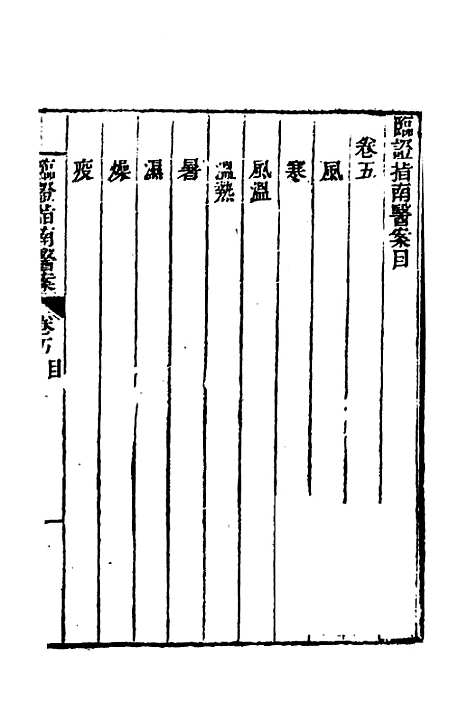 臨證指南醫案目
卷五
風
寒
風溫
溫熱
暑
濕
燥
疫
臨證指南醫案
卷五
目